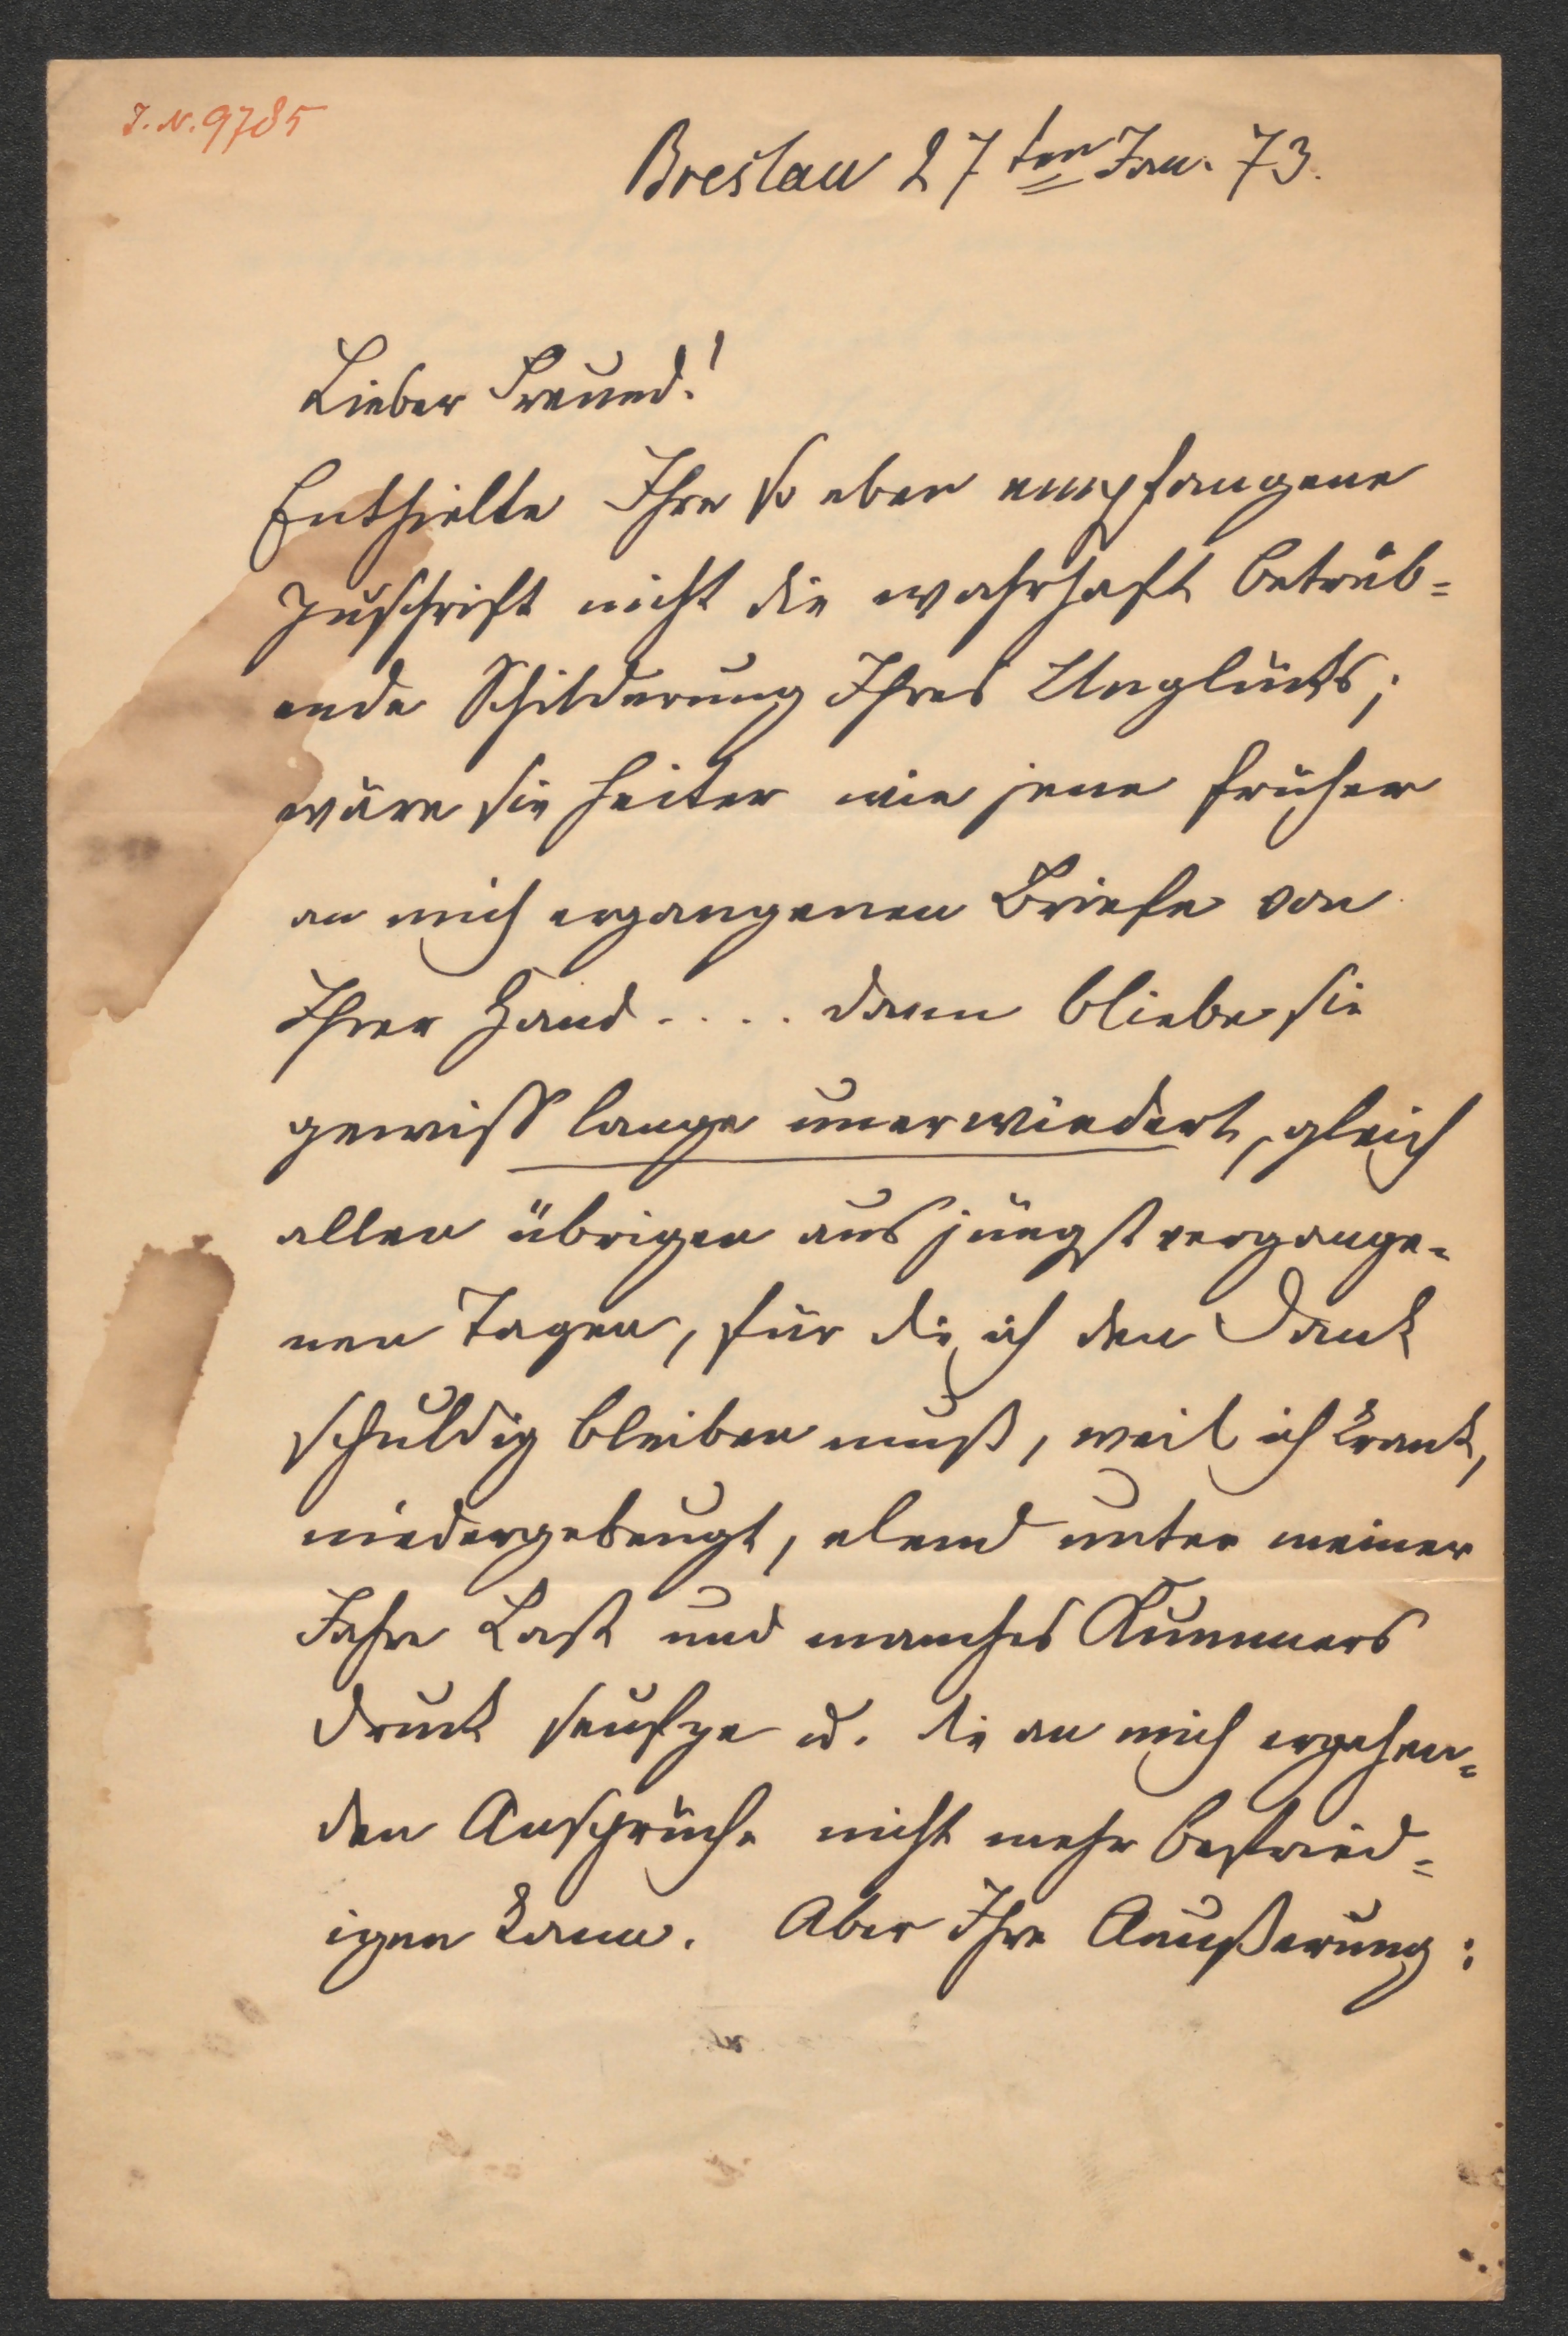 I. N. 9785
Breslau 27ten Jan. 73.
Lieber Freund!
Enthielte Ihre so eben empfangene
Zuschrift nicht die wahrhaft betrüb=
ende Schilderung Ihres Unglücks;
wäre sie heiter wie jene früher
an mich ergangenen Briefe von
Ihrer Hand.... dann bliebe sie
gewiss lange unerwiedert, gleich
allen übrigen aus jüngst vergange=
nen Tagen, für die ich den Dank
schuldig bleiben muß, weil ich krank,
niedergebeugt, elend unter meiner
Jahre Last und manches Kummers
Druck seufze u. die an mich ergehen=
den Ansprüche nicht mehr befried=
igen kann. Aber Ihre Aeußerung: